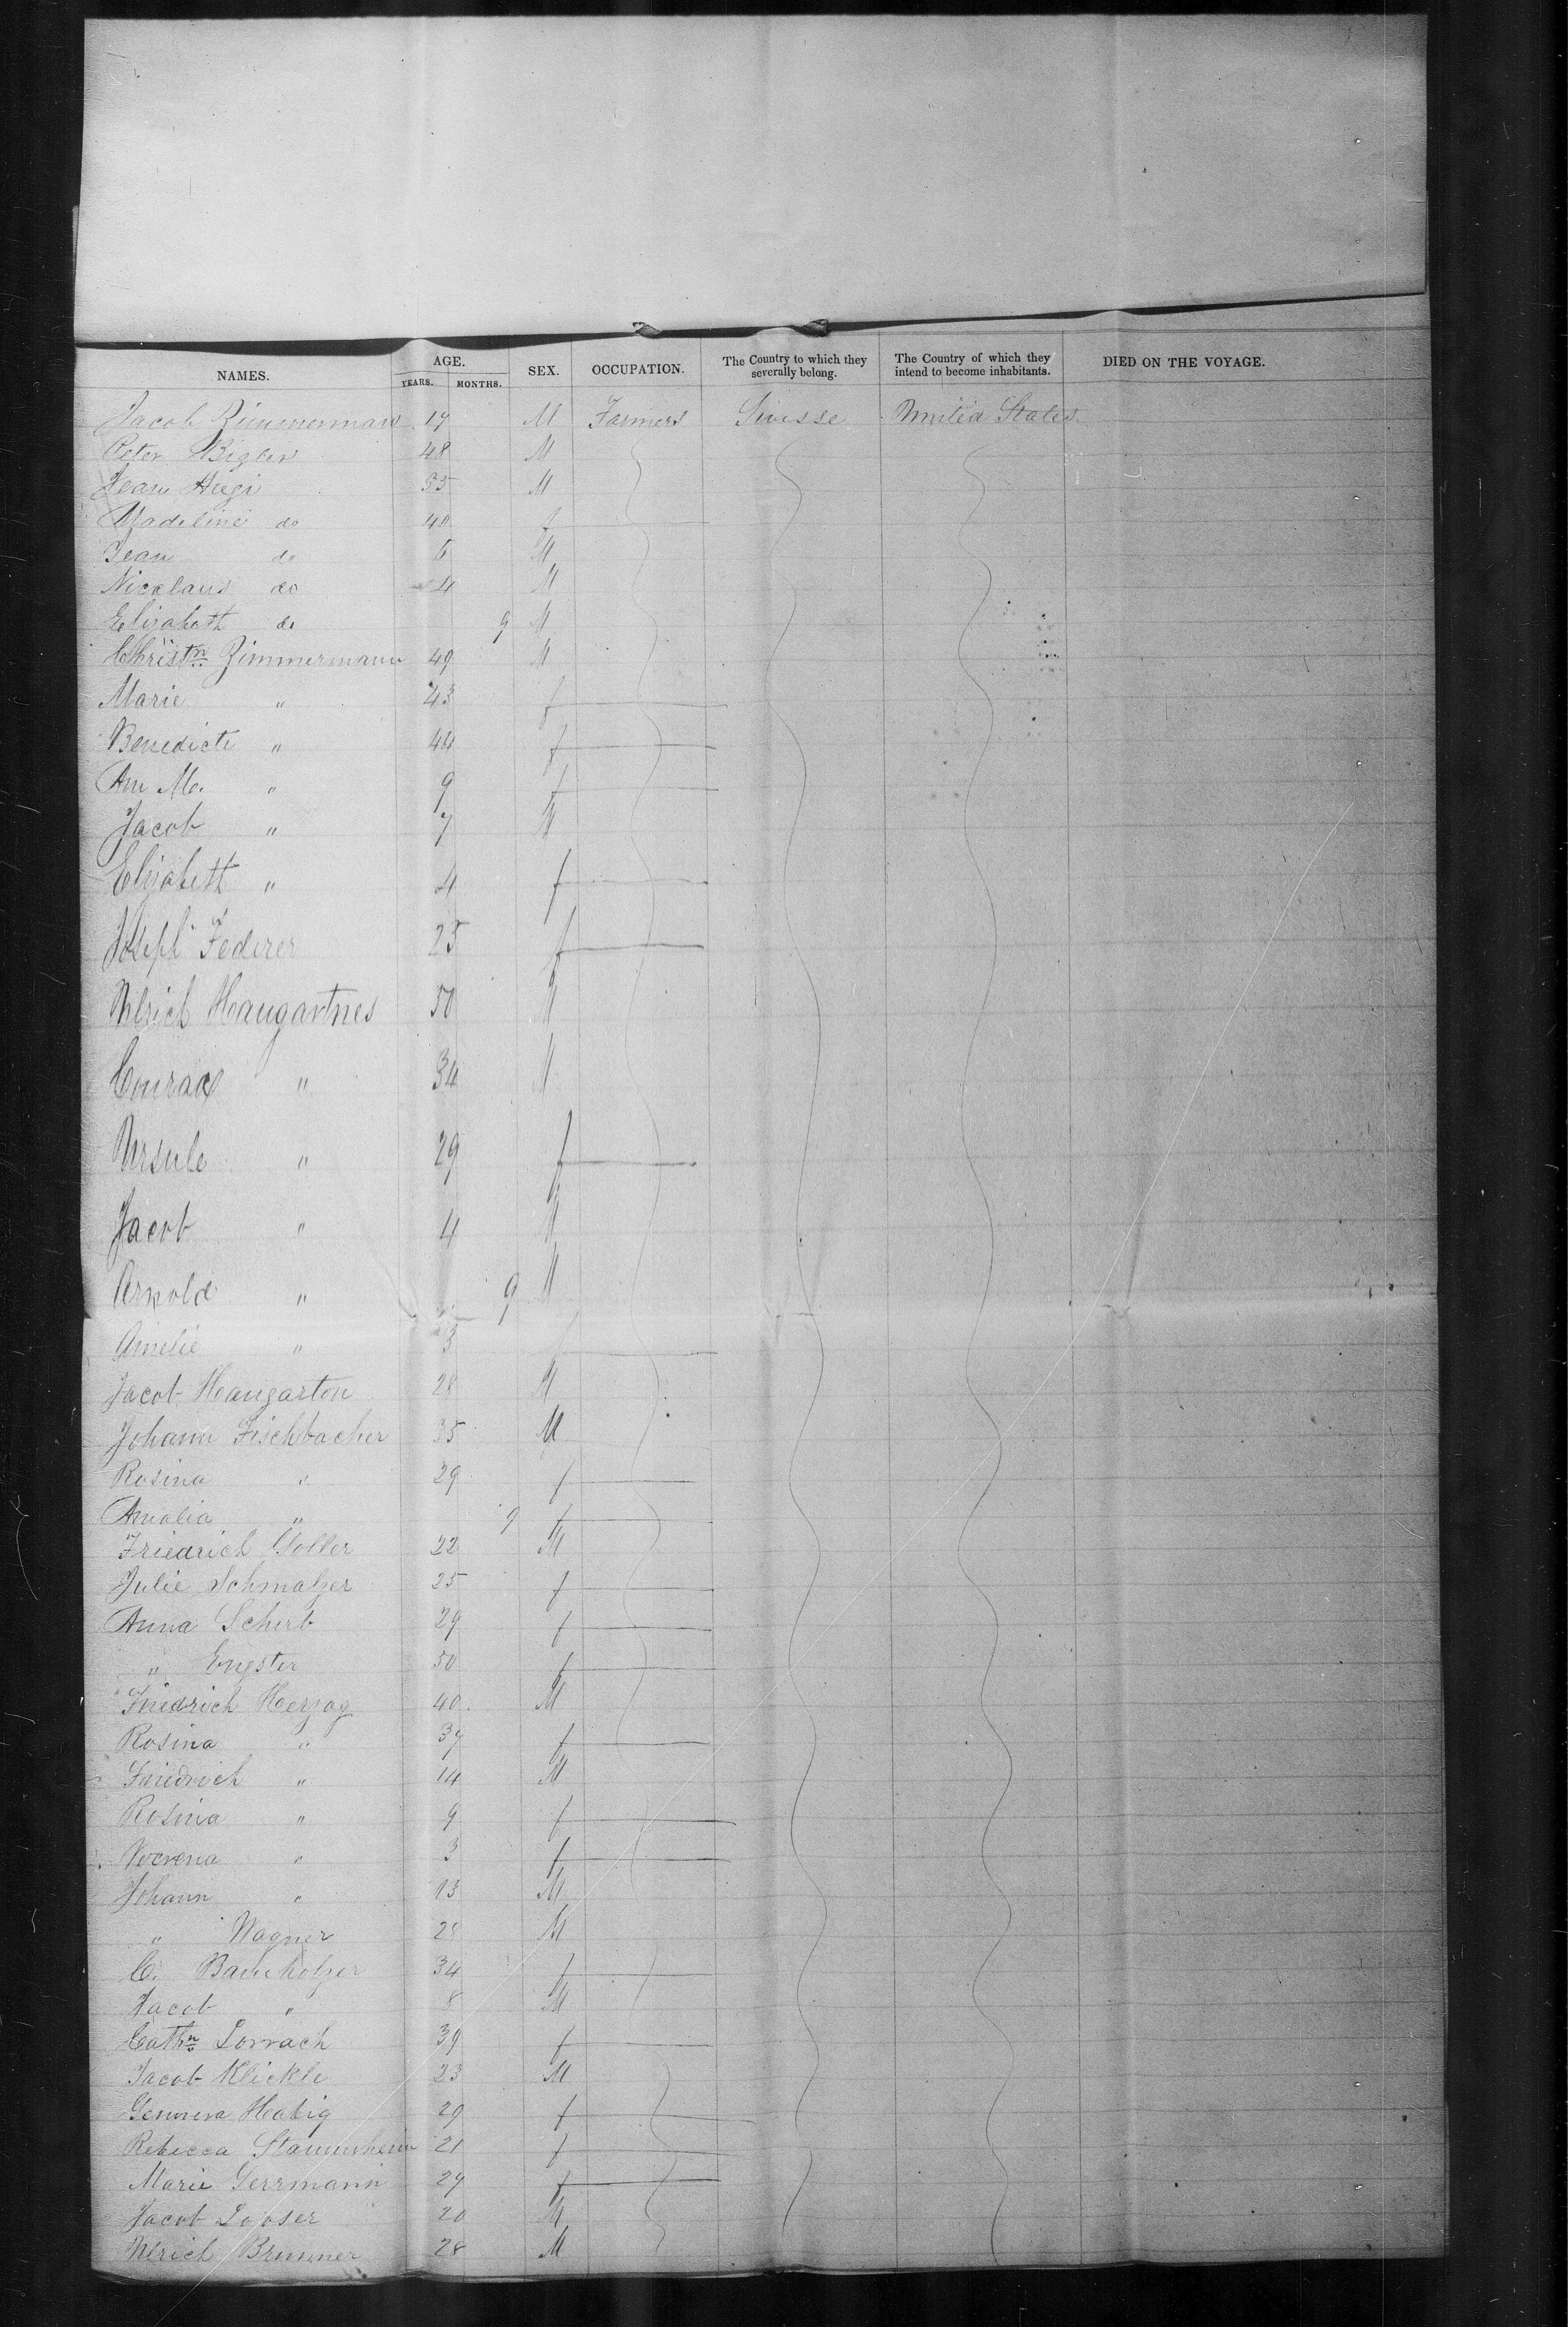 NAMES. AGE. YEARS. MONTHS. SEX. OCCUPATION. The Country to which they severally belong. The Country of which they intend to become inhabitants. DIED ON THE VOYAGE.
Jacob Zimmerman 17 M Farmers Suisse United States
Peter Bigler 48 M
Jean 35 M
Madeline do 40 f
Jean do 6 M
Nicolaus do 4 M
Elisabeth do 9 M
Christn Zimmermann 49 M
Marie " 43 f
Benedicte " 44 f
An Me. " 9 f
Jacob " 7 M
Elisabeth " 4 f
Joseph Federer 25 f
Ulrich Haugartnes 50 M
Conrad " 34 M
Ursule " 29 f
Jacob " 4 M
Arnold " 9 M
Amelie " 3 f
Jacob Haugarton 28 M
Johann Fischbacher 35 M
Rosina " 29 f
Amalia " 9 f
Friedrich Goller 22 M
Julie Schmalzer 25 f
Anna Scherb 29 f
" Engster 50 f
Friedrich Herzog 40 M
Rosina " 37 f
Friedrich " 14 M
Rosina " 9 f
Verena " 3 f
Johann " 13 M
" Wagner 28 M
C. Bauholzer 34 f
Jacob " 8 M
Cathn Lorrach 39 f
Jacob Klickle 23 M
Habig 29 f
Rebecca 21 f
Marie Gerrmann 27 f
Jacob Looser 20 M
Ulrich Brunner 28 M